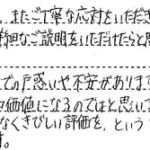 、またご丁寧な応対をいただき
詳細なご説明をいただけたらと思
ての戸惑いや不安があります
の価値になるのではと思いて
なくきびしい評価を、という
す。